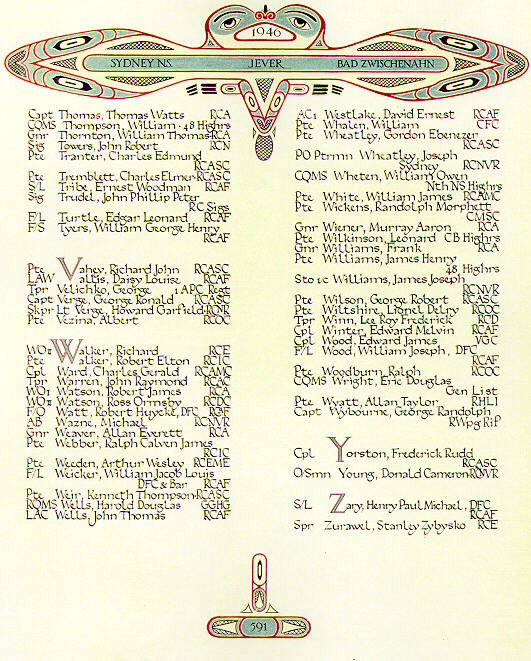 1946
SYDNEY N.S. JEVER BAD ZWISCHENAHN
Capt Thomas, Thomas Watts RCA
CQMS Thompson, William · 48 Highrs
Gnr Thornton, William Thomas RCA
Sig Towers, John Robert RCN
Pte Tranter, Charles Edmund
RCASC
Pte Tremblett, Charles Elmer RCASC
S/L Tribe, Ernest Woodman RCAF
Sig Trudel, John Phillip Peter
RC Sigs
F/L Turtle, Edgar Leonard RCAF
F/S Tyers, William George Henry
RCAF
Pte Vahey, Richard John RCASC
LAW Vallis, Daisy Louise RCAF
Tpr Velichko, George 1 APC Regt
Capt Verge, George Ronald RCASC
Skpr Lt Verge, Howard Garfield RCNR
Pte Vezina, Albert RCOC
WO II Walker, Richard RCE
Pte Walker, Robert Elton RCIC
Cpl Ward, Charles Gerald RCAMC
Tpr Warren, John Raymond RCAC
WO I Watson, Robert James RCA
WO II Watson, Ross Ormsby RCDC
F/O Watt, Robert Huycke, DFC RCAF
AB Wazne, Michael RCNVR
Gnr Weaver, Allan Everett RCA
Pte Webber, Ralph Calven James
RCIC
Pte Weeden, Arthur Wesley RCEME
F/L Weicker, William Jacob Louis
DFC & Bar RCAF
Pte Weir, Kenneth Thompson RCASC
RQMS Wells, Harold Douglas GGHG
LAC Wells, John Thomas RCAF
AC1 Westlake, David Ernest RCAF
Pte Whalen, William CFC
Pte Wheatley, Gordon Ebenezer
RCASC
PO Ptrmn Wheatley, Joseph
Sydney RCNVR
CQMS Wheten, William Owen
Nth NS Highrs
Pte White, William James RCAMC
Pte Wickens, Randolph Morphett
CMSC
Gnr Wiener, Murray Aaron RCA
Pte Wilkinson, Leonard CB Highrs
Gnr Williams, Frank RCA
Pte Williams, James Henry
48 Highrs
Sto 1c Williams, James Joseph
RCNVR
Pte Wilson, George Robert RCASC
Pte Wiltshire, Lionel Delry RCOC
Tpr Winn, Lee Roy Frederick RCD
Cpl Winter, Edward Melvin RCAF
Cpl Wood, Edward James VGC
F/L Wood, William Joseph, DFC
RCAF
Pte Woodburn, Ralph RCOC
CQMS Wright, Eric Douglas
Gen List
Pte Wyatt, Allan Taylor RHLI
Capt Wybourne, George Randolph
RWpg Rif
Cpl Yorston, Frederick Rudd
RCASC
O/Smn Young, Donald Cameron RCNVR
S/L Zary, Henry Paul Michael, DFC
RCAF
Spr Zurawel, Stanley Zybysko RCE
591